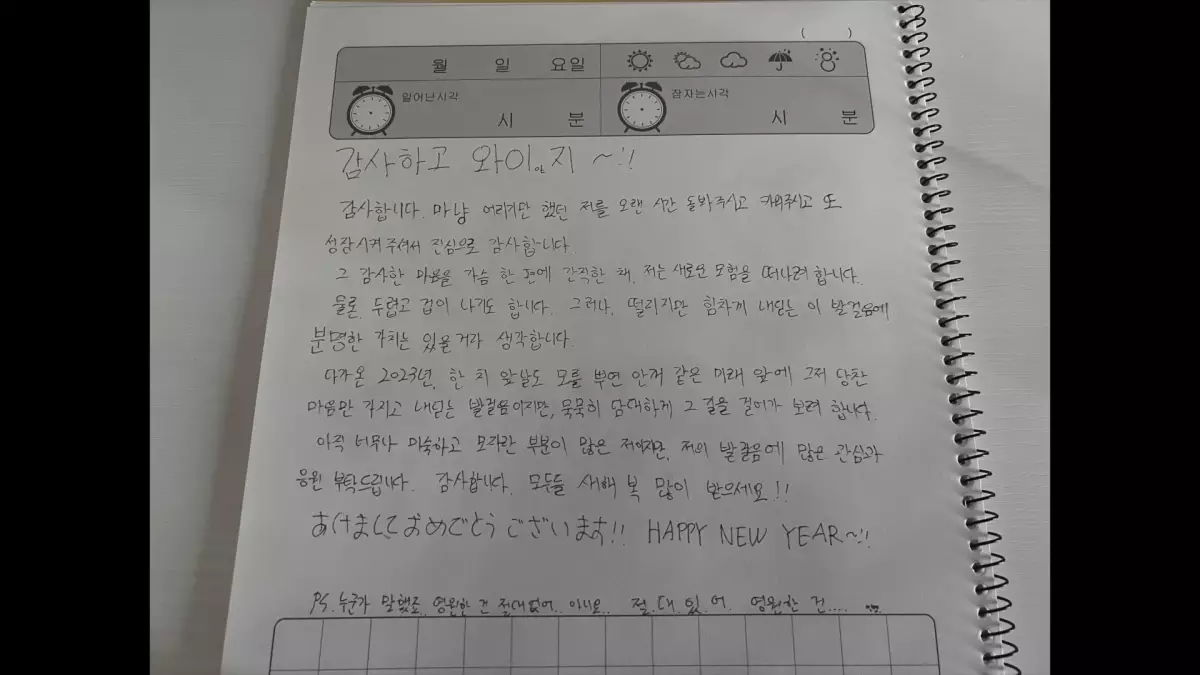 ( )
월 일 요일
일어난시각 시 분
잠자는시각 시 분
감사하고 와이앞지 ~!!
감사합니다. 마냥 어리기만 했던 저를 오랜 시간 돌봐주시고 키워주시고 또
성장시켜주셔서 진심으로 감사합니다.
그 감사한 마음을 가슴 한 편에 간직한 채, 저는 새로운 모험을 떠나려 합니다.
물론, 두렵고 겁이 나기도 합니다. 그러나, 떨리지만 힘차게 내딛는 이 발걸음에
분명한 가치는 있을거라 생각합니다.
다가온 2023년, 한 치 앞날도 모를 뿌연 안개 같은 미래 앞에 그저 당찬
마음만 가지고 내딛는 발걸음이지만, 묵묵히 담대하게 그 길을 걸어가 보려 합니다.
아직 너무나 미숙하고 모자란 부분이 많은 저이지만, 저의 발걸음에 많은 관심과
응원 부탁드립니다. 감사합니다. 모두들 새해 복 많이 받으세요!!
あけましておめでとうございます!! HAPPY NEW YEAR~!!
PS. 누군가 말했죠. 영원한 건 절대없어.. 아니요.. 절.대.있.어. 영원한 건....